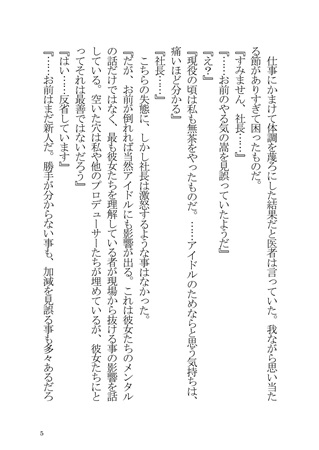 仕事にかまけて体調を蔑ろにした結果だと医者は言っていた。我ながら思い当た
る節がありすぎて困ったものだ。
『すみません、社長……』
『……お前のやる気の嵩を見誤っていたようだ』
『え？』
『現役の頃は私も無茶をやったものだ。……アイドルのためならと思う気持ちは、
痛いほど分かる』
『社長……』
　こちらの失態に、しかし社長は激怒するような事はなかった。
『だが、お前が倒れれば当然アイドルにも影響が出る。これは彼女たちのメンタル
の話だけではなく、最も彼女たちを理解している者が現場から抜ける事の影響を話
している。空いた穴は私や他のプロデューサーたちが埋めているが、彼女たちにと
ってそれは最善ではないだろう』
『はい……反省しています』
『……お前はまだ新人だ。勝手が分からない事も、加減を見誤る事も多々あるだろ
5